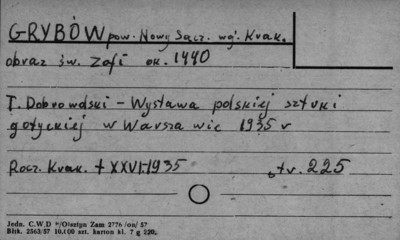 GRYBÓW pow. Nowy Sącz. wg. Krak.
obraz św. Zofi ok. 1440
T. Dobrowolski - Wystawa polskiej sztuki
gotyckiej w Warszawie 1935 r
Rocz. Krak. t XXVI-1935 str. 225
Jedn. C.W.D */Olsztyn Zam 2776 /on/ 57
Bltk. 2563/57 10.100 szt. karton kl. 7 g 220.